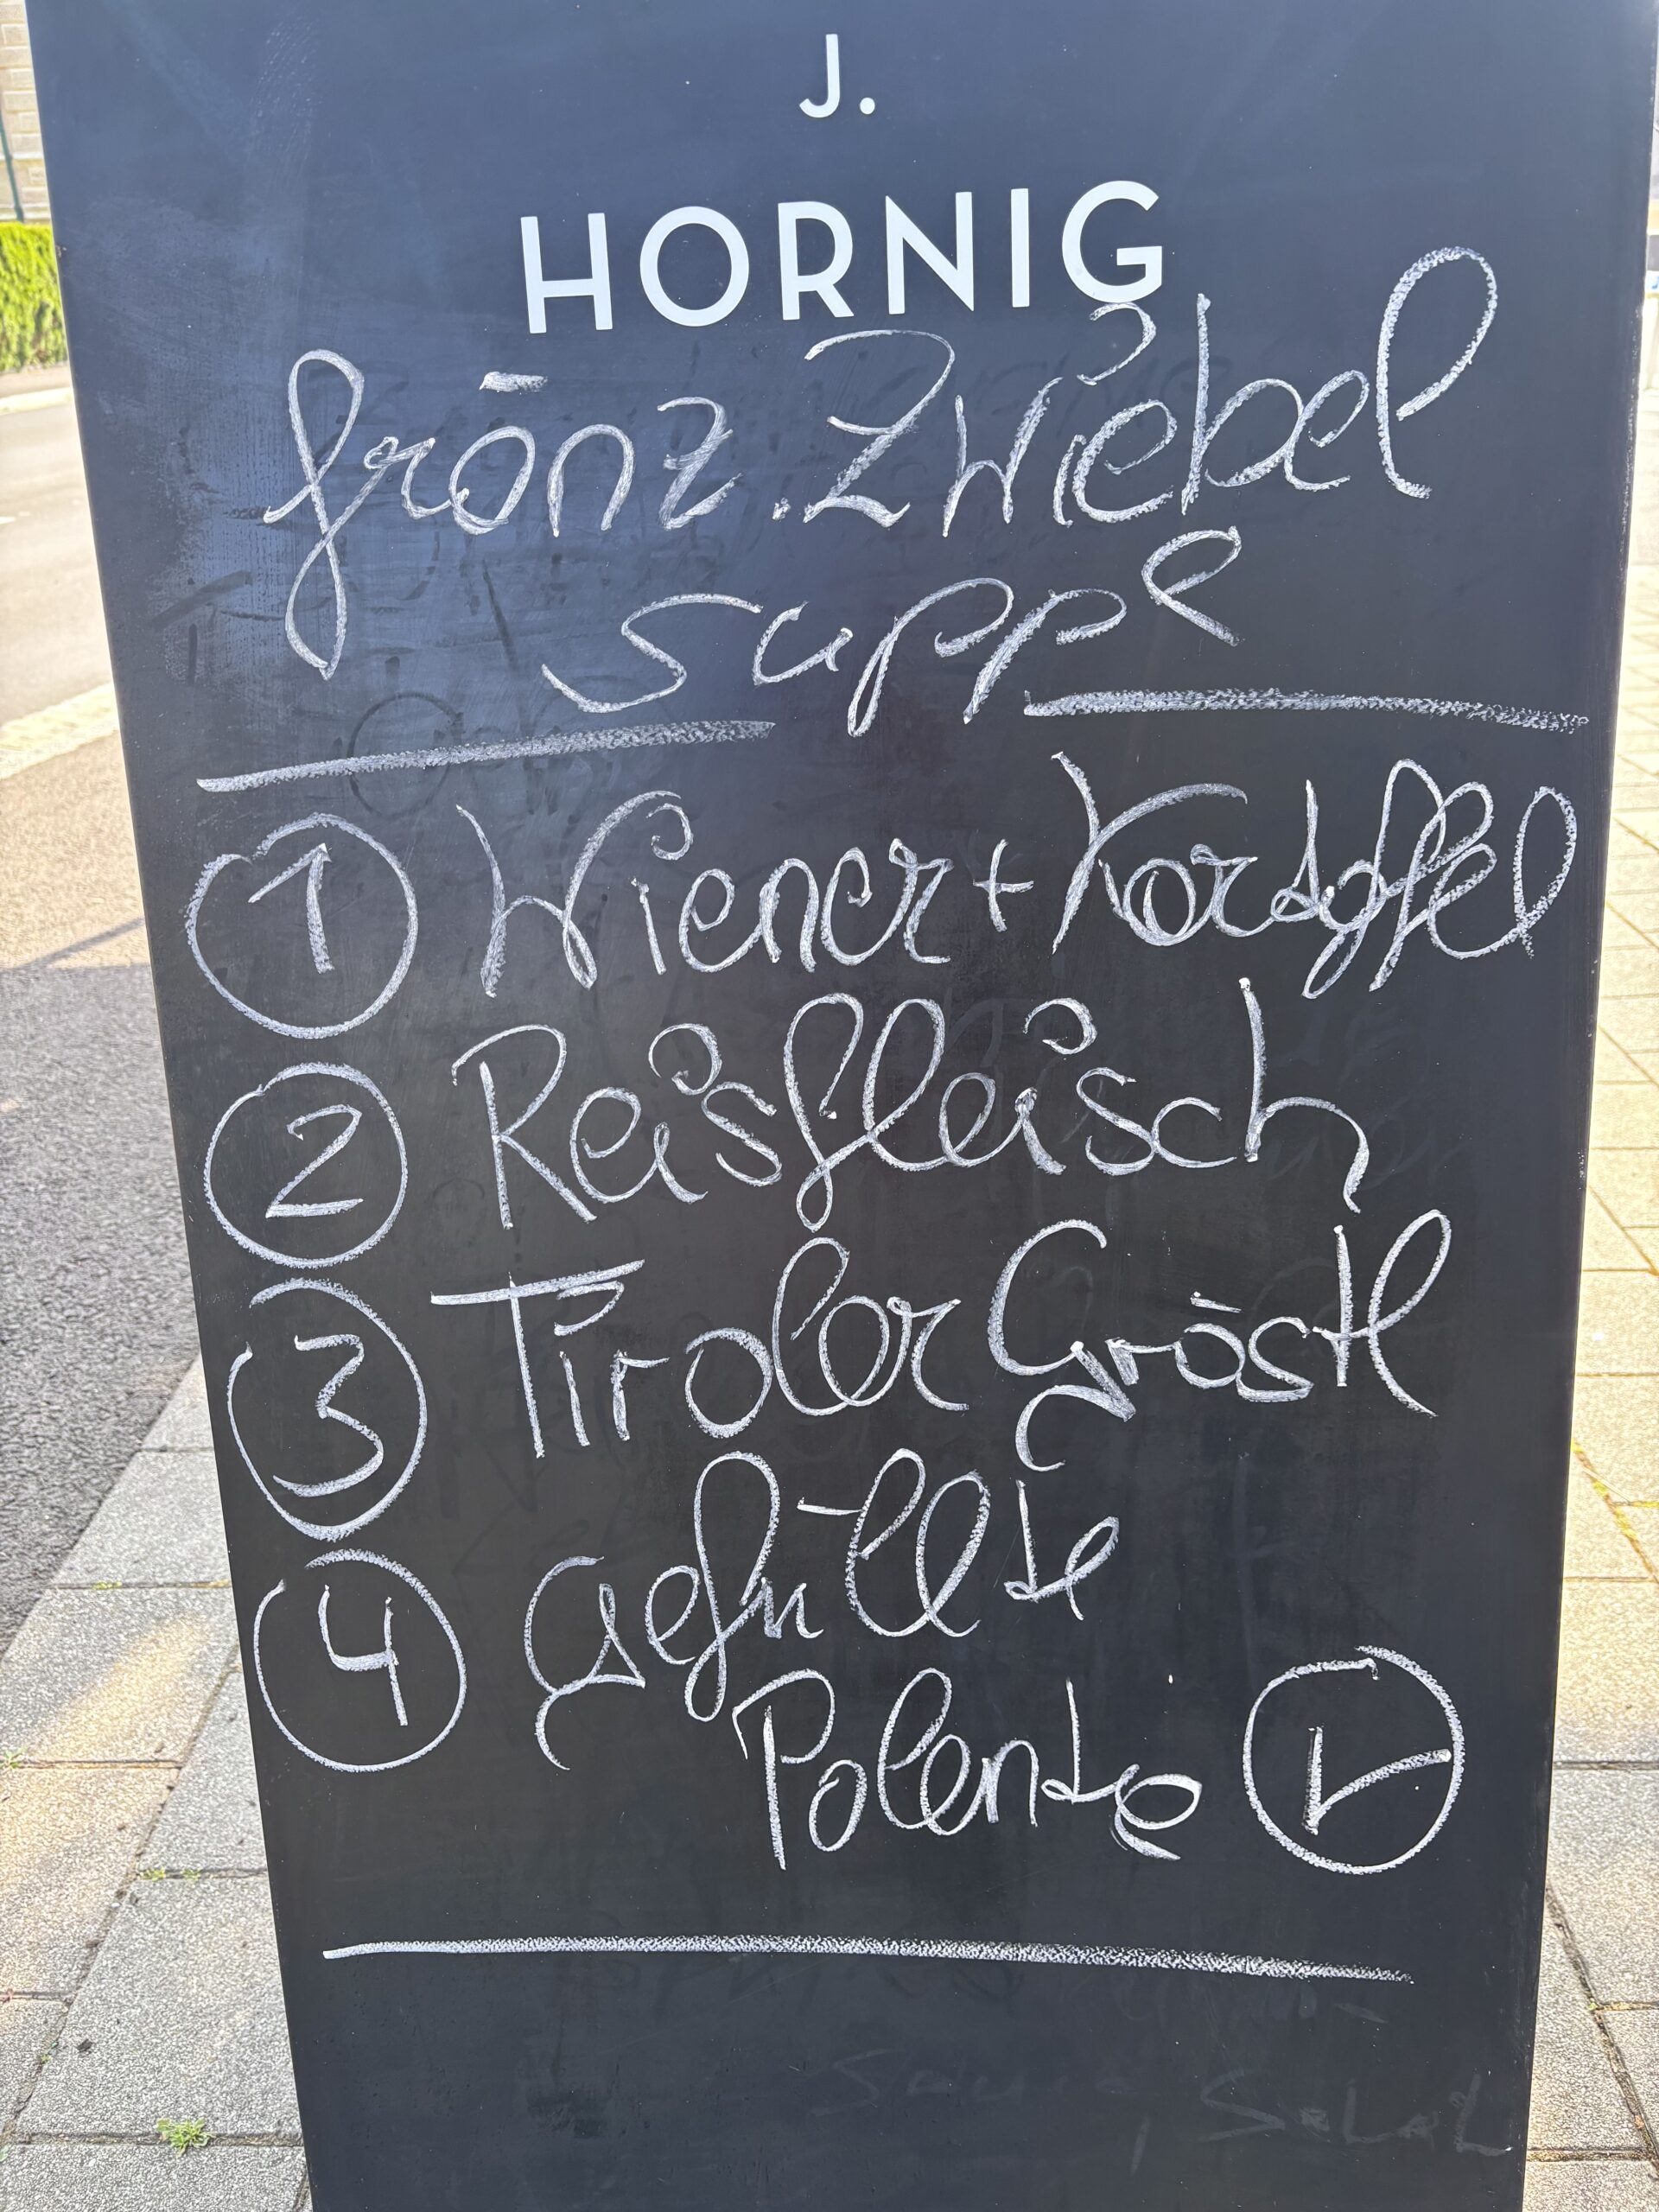 J.
HORNIG
franz. Zwiebel
suppe
1 Wiener + Kartoffel
2 Reisfleisch
3 Tiroler Gröstl
4 Gefüllte
Polenta V